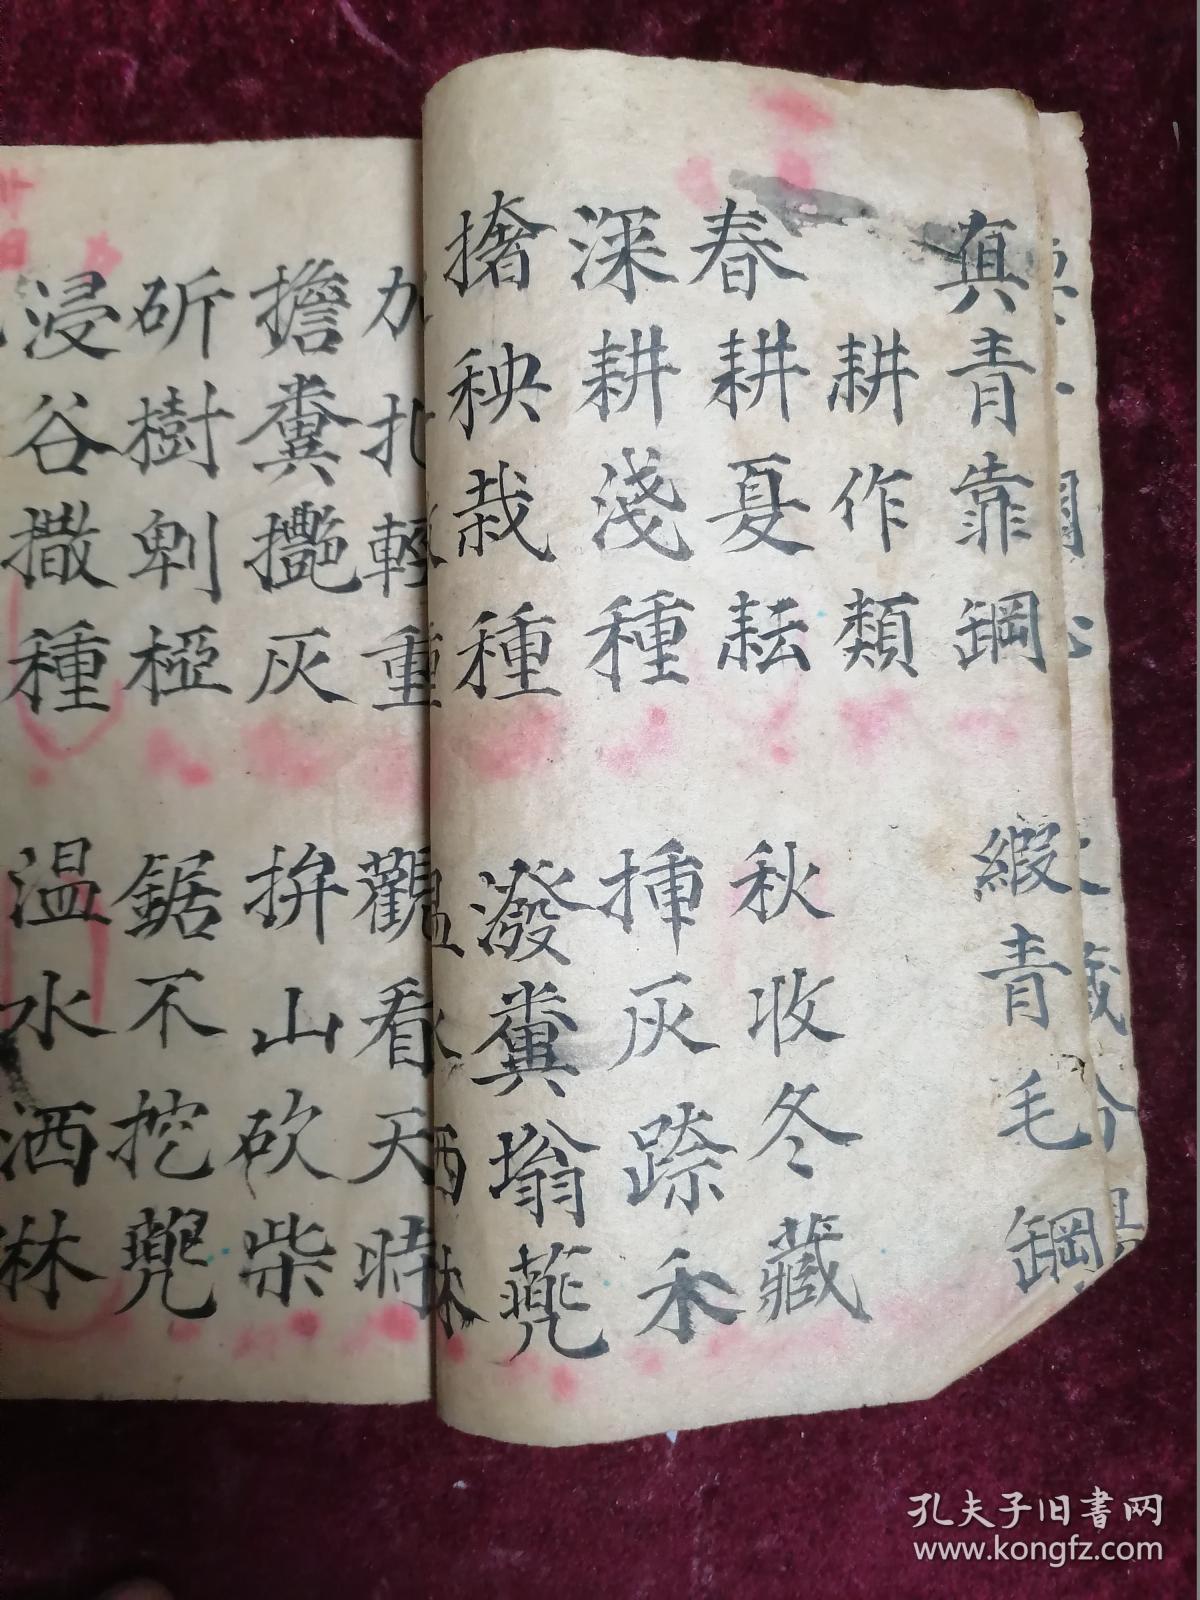 真青靠鋼 緞青毛鋼
耕作類
春耕夏耘 秋收冬藏
深耕淺種 揰灰踪禾
撦秧栽種 潑糞塕蔸
扎輕重 觀看天時
擔糞㩉灰 拚山砍柴
斫樹剌椏 鋸不挖蔸
浸谷撒種 温水洒淋
孔夫子旧书网
www.kongfz.com